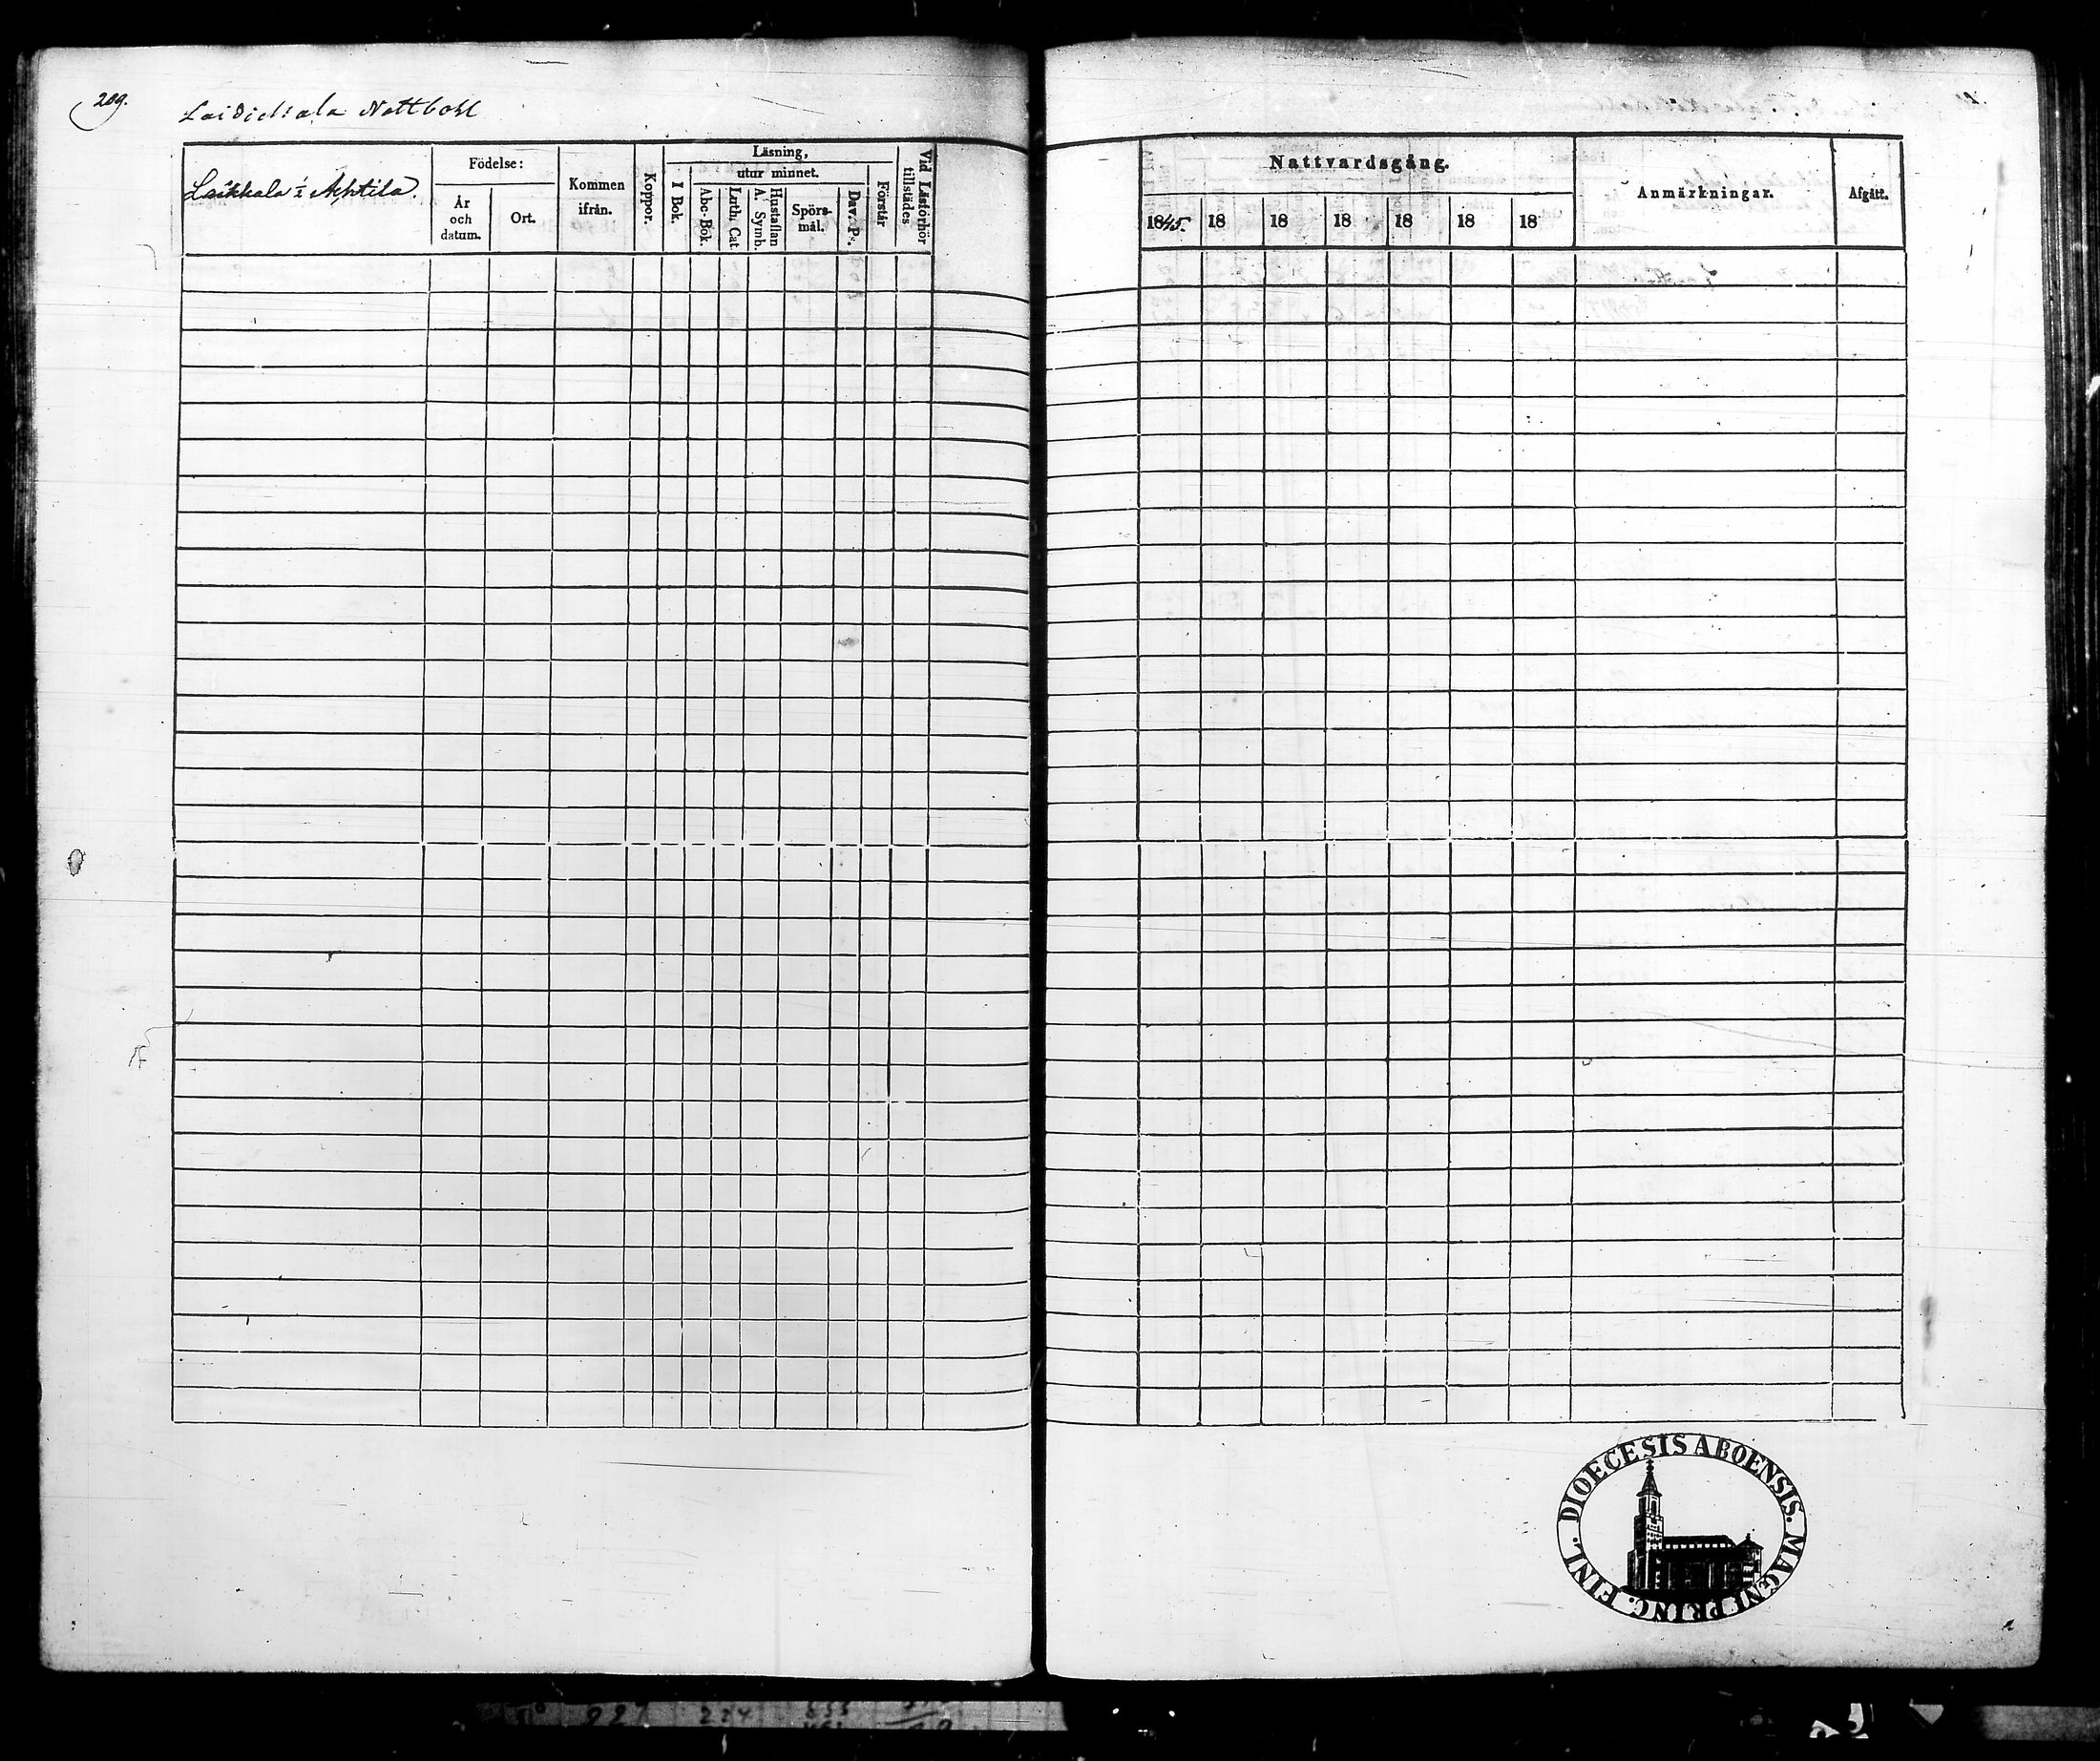 209.
Laidicksala Nattbohl
Laikkala i Ahtila.
Födelse:
År
och
datum.
Ort.
Kommen
ifrån.
Koppor.
Läsning,
I Bok.
utur minnet.
Abc-Bok.
Luth. Cat.
Hustaflan
A. Symb.
Spörs-
mål.
Dav. Ps.
Förstår
Vid Läsförhör
tillstädes
Nattvardsgång.
1845. 18 18 18 18 18 18
Anmärkningar.
Afgått.
DIOECESIS ABOENSIS. MAGNI PRINC. FINL.
227 224